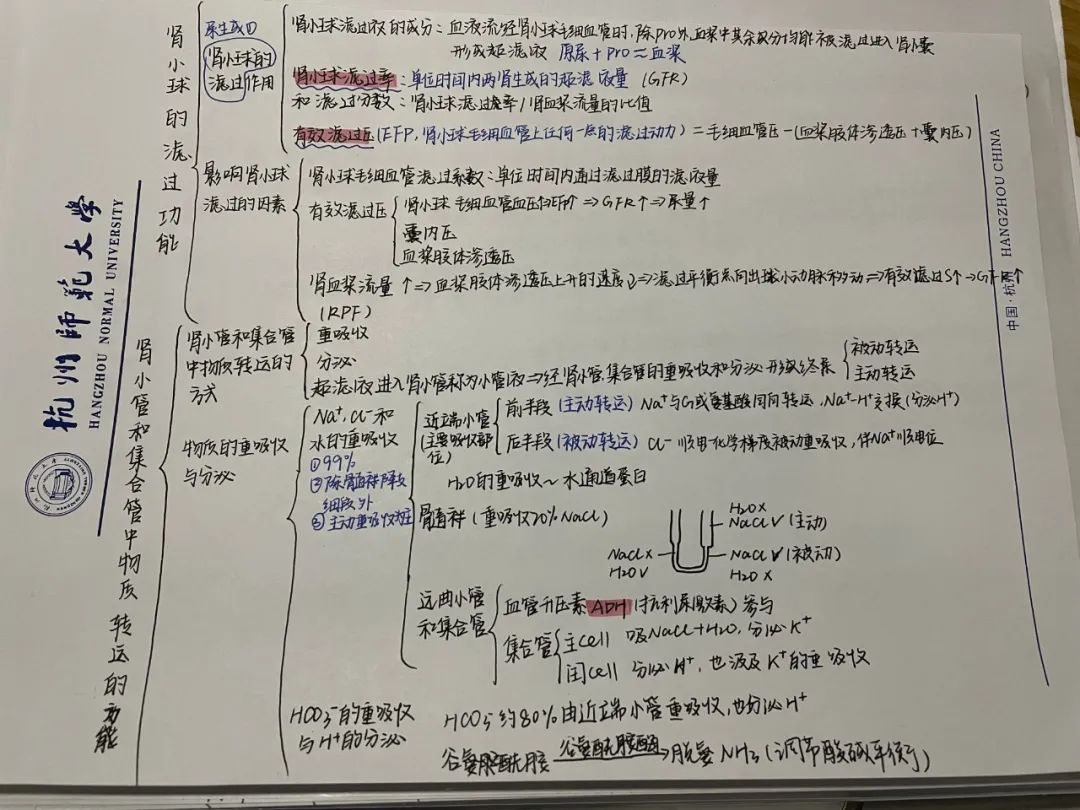 肾小球的滤过功能
原尿生成①
肾小球的
滤过作用
肾小球滤过液的成分：血液流经肾小球毛细血管时，除pro外，血浆中其余成分均能被滤过进入肾小囊
形成超滤液 原尿+pro≈血浆
肾小球滤过率：单位时间内两肾生成的超滤液量（GFR）
和滤过分数：肾小球滤过率/肾血浆流量的比值
有效滤过压（EFP，肾小球毛细血管上任何一点的滤过动力）=毛细血管压-（血浆胶体渗透压+囊内压）
影响肾小球
滤过的因素
肾小球毛细血管滤过系数：单位时间内通过滤过膜的滤液量
有效滤过压
肾小球毛细血管血压↑EFP↑⇒GFR↑⇒尿量↑
囊内压
血浆胶体渗透压
肾血浆流量↑⇒血浆胶体渗透压上升的速度↓⇒滤过平衡点向出球小动脉移动⇒有效滤过S↑⇒GFR↑
（RPF）
肾小管和集合管中物质转运的功能
肾小管和集合管
中物质转运的
方式
重吸收
分泌
超滤液进入肾小管称为小管液⇒经肾小管、集合管的重吸收和分泌形成终尿
被动转运
主动转运
物质的重吸收
与分泌
Na⁺、Cl⁻和
水的重吸收
①99%
②除髓袢降支
细段外
③主动重吸收为主
近端小管
（主要吸收部
位）
前半段（主动转运）Na⁺与G或氨基酸同向转运，Na⁺-H⁺交换（分泌H⁺）
后半段（被动转运）Cl⁻顺电化学梯度被动重吸收，伴Na⁺顺电位
H₂O的重吸收~水通道蛋白
髓袢（重吸收20%NaCl）
H₂O×
NaCl√（主动）
NaCl×
H₂O√
NaCl√（被动）
H₂O×
远曲小管
和集合管
血管升压素ADH（抗利尿激素）参与
集合管
主cell 吸NaCl+H₂O，分泌K⁺
闰cell 分泌H⁺，也涉及K⁺的重吸收
HCO₃⁻的重吸收
与H⁺的分泌
HCO₃⁻约80%由近端小管重吸收，也分泌H⁺
谷氨酰胺 谷氨酰胺酶→脱氨NH₃（调节酸碱平衡）
杭州師範大學
HANGZHOU NORMAL UNIVERSITY
中国·杭州 HANGZHOU CHINA